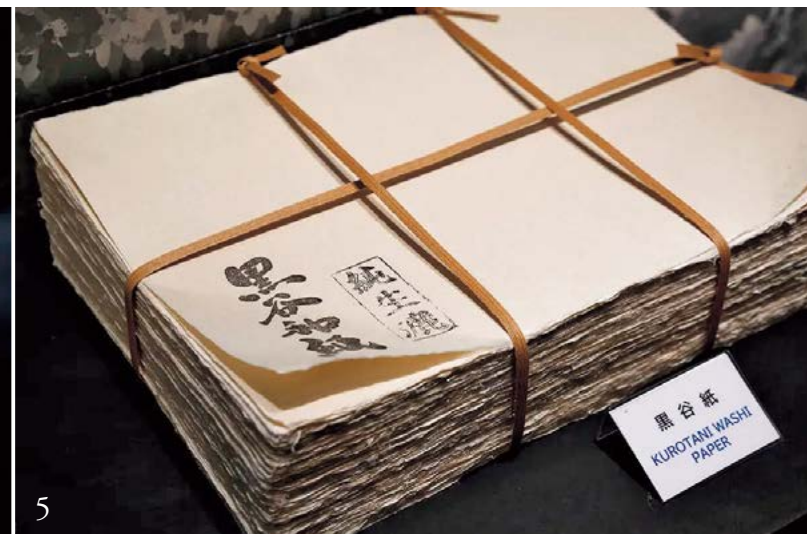 黒谷和紙
純生漉
黒谷紙
KUROTANI WASHI
PAPER
5